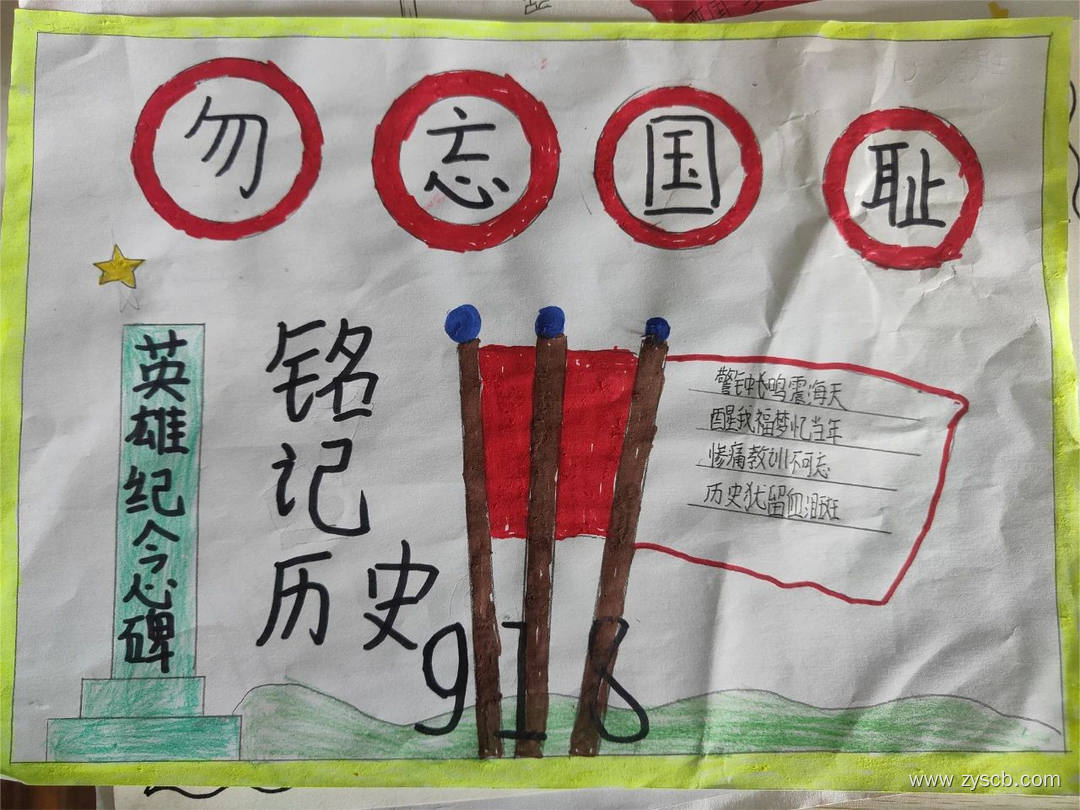 勿忘国耻
英雄纪念碑
铭记
历史
918
警钟长鸣震海天
醒我福梦忆当年
惨痛教训不可忘
历史犹留血泪斑
www.zyscb.com